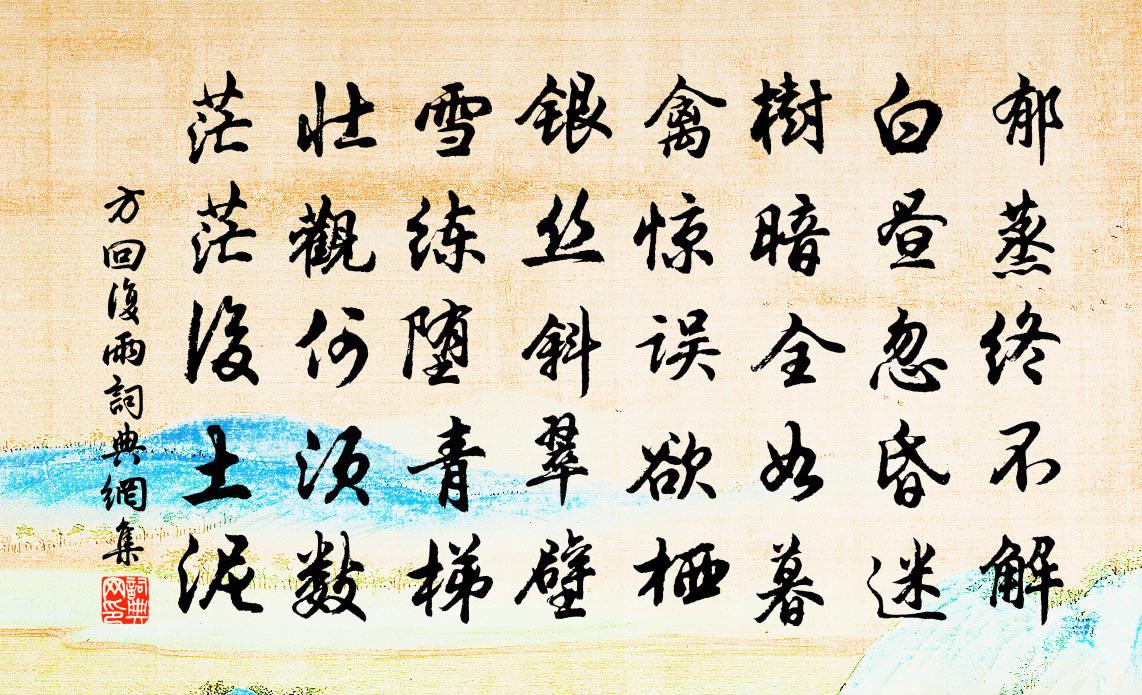 郁蒸终不解
白昼忽昏迷
樹暗全如暮
禽惊误欲栖
銀丝斜翠壁
雪练堕青梯
壮觀何须数
茫茫後土泥
方回復雨詞典網集
詞典网印